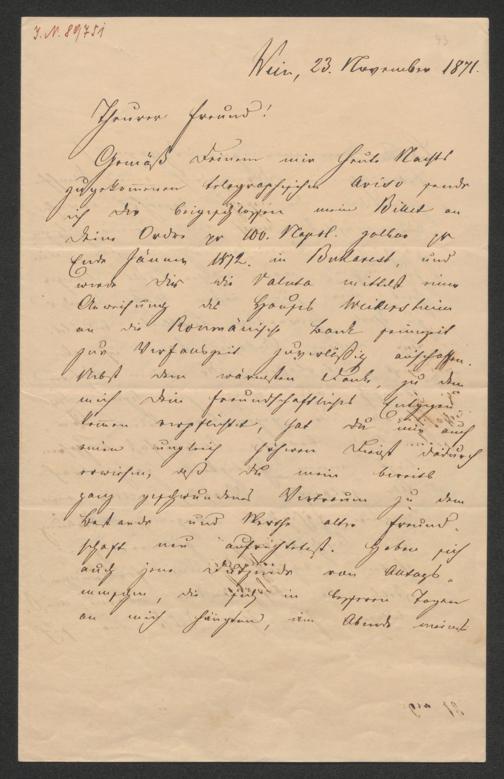 J. N. 89751
Wien, 23. November 1871.
Theurer Freund!
Gemäß Deinem mir heute Nachts
zugekommenen telegraphischen Aviso sende
ich Dir beigeschlossen mein Billet an
Deine Ordre pr 100. Napol. zalbar pr
Ende Jänner 1872. in Bukarest, und
werde Dir die Valuta mittelst einer
Anweisung des Hauses Weikersheim
an die Roumänische Bank seinerzeit
zur Verfallszeit zuverläßig anschaffen.
Nebst dem wärmsten Danke, zu dem
mich Dein freundschaftliches Entgegen-
kommen verpflichtet, hast Du mir auch
einen ungleich höheren Dienst dadurch
erwiesen, daß Du mein bereits
ganz geschwundenes Vertrauen zu dem
Bestande und Werthe alter Freund-
schaft neu aufrichtetest. Haben sich
auch jene Dutzende von Alltags-
menschen, die sich in besseren Tagen
an mich hängten, am Abende meines